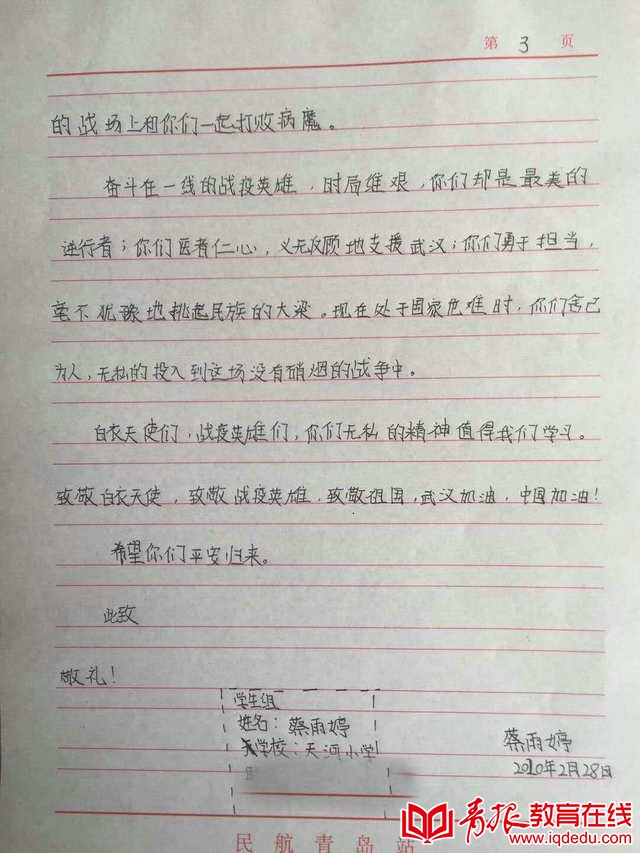 第 3 页
的战场上和你们一起打败病魔。
奋斗在一线的战疫英雄，时局维艰，你们却是最美的
逆行者；你们医者仁心，义无反顾地支援武汉；你们勇于担当，
毫不犹豫地挑起民族的大梁。现在处于国家危难时，你们舍己
为人，无私的投入到这场没有硝烟的战争中。
白衣天使们，战疫英雄们，你们无私的精神值得我们学习。
致敬白衣天使，致敬战疫英雄，致敬祖国，武汉加油，中国加油！
希望你们平安归来。
此致
敬礼！
学生组
姓名：蔡雨婷
学校：天河小学
蔡雨婷
2020年2月28日
民航青岛站
青报教育在线
www.iqdedu.com